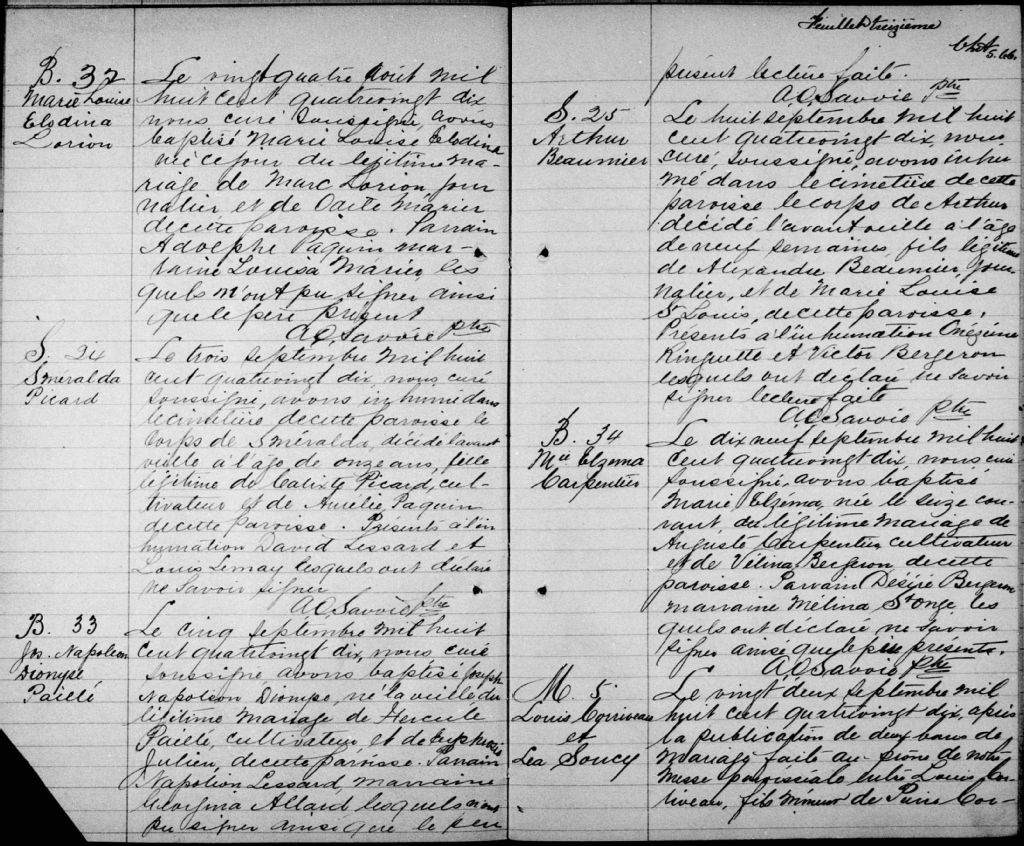 B. 32
Marie Louise
Elodina
Lorion
Le vingt quatre août mil
huit cent quatrevingt dix
nous curé soussigné, avons
baptisé Marie Louise Elodina
née ce jour du legitime ma-
riage de Marc Lorion jour
nalier et de Odile Marier
de cette paroisse. Parrain
Adolphe Paquin mar-
raine Louisa Marier, les
quels n'ont pu signer ainsi
que le père present
A.O. Savoie ptre
S. 24
Smeralda
Picard
Le trois septembre mil huit
cent quatrevingt dix, nous curé
soussigné, avons inhumé dans
le cimetière de cette paroisse le
corps de Smeralda, décidé l'avant
veille à l'âge de onze ans, fille
légitime de Calixte Picard, cul-
tivateur et de Aurélie Paquin
de cette paroisse. Présents à l'in
humation David Lessard et
Louis Lemay lesquels ont déclaré
ne savoir signer
A.O. Savoie ptre
B. 33
Jos. Napoleon
Dionyse
Paillé
Le cinq septembre mil huit
cent quatrevingt dix, nous curé
soussigné avons baptisé Joseph
Napoléon Dionyse, né la veille, du
légitime mariage de Hercule
Paillé, cultivateur, et de Euphrosie
Julien, de cette paroisse. Parrain
Napoléon Lessard, marraine
Georgina Allard lesquels n'ont
pu signer ainsi que le père
Feuillet treizième
présent lecture faite.
A.O. Savoie ptre
S. 25
Arthur
Beaumier
Le huit septembre mil huit
cent quatrevingt dix, nous
curé, soussigné, avons inhu
mé dans le cimetière de cette
paroisse le corps de Arthur
décidé l'avant veille à l'âge
de neuf semaines, fils légitime
de Alexandre Beaumier, jour
nalier, et de Marie Louise
St Louis, de cette paroisse.
Présents à l'inhumation Onézime
Ringuette et Victor Bergeron
lesquels ont déclaré ne savoir
signer lecture faite
A.O. Savoie ptre
B. 34
Mie Elzema
Carpentier
Le dix neuf septembre mil huit
cent quatrevingt dix, nous curé
soussigné, avons baptisé
Marie Elzéma, née le seize cou-
rant, du légitime mariage de
Auguste Carpentier cultivateur
et de Vélina Bergeron de cette
paroisse. Parrain Désiré Bergeron
marraine Mélina St Onge, les
quels ont déclaré ne savoir
signer ainsi que le père présents.
A.O. Savoie Ptre
M. 5.
Louis Corriveau
et
Lea Soucy
Le vingt deux septembre mil
huit cent quatrevingt dix, après
la publication de deux bans de
mariage faite au prône de notre
messe paroissiale entre Louis Cor
riveau, fils mineur de Pierre Cor-